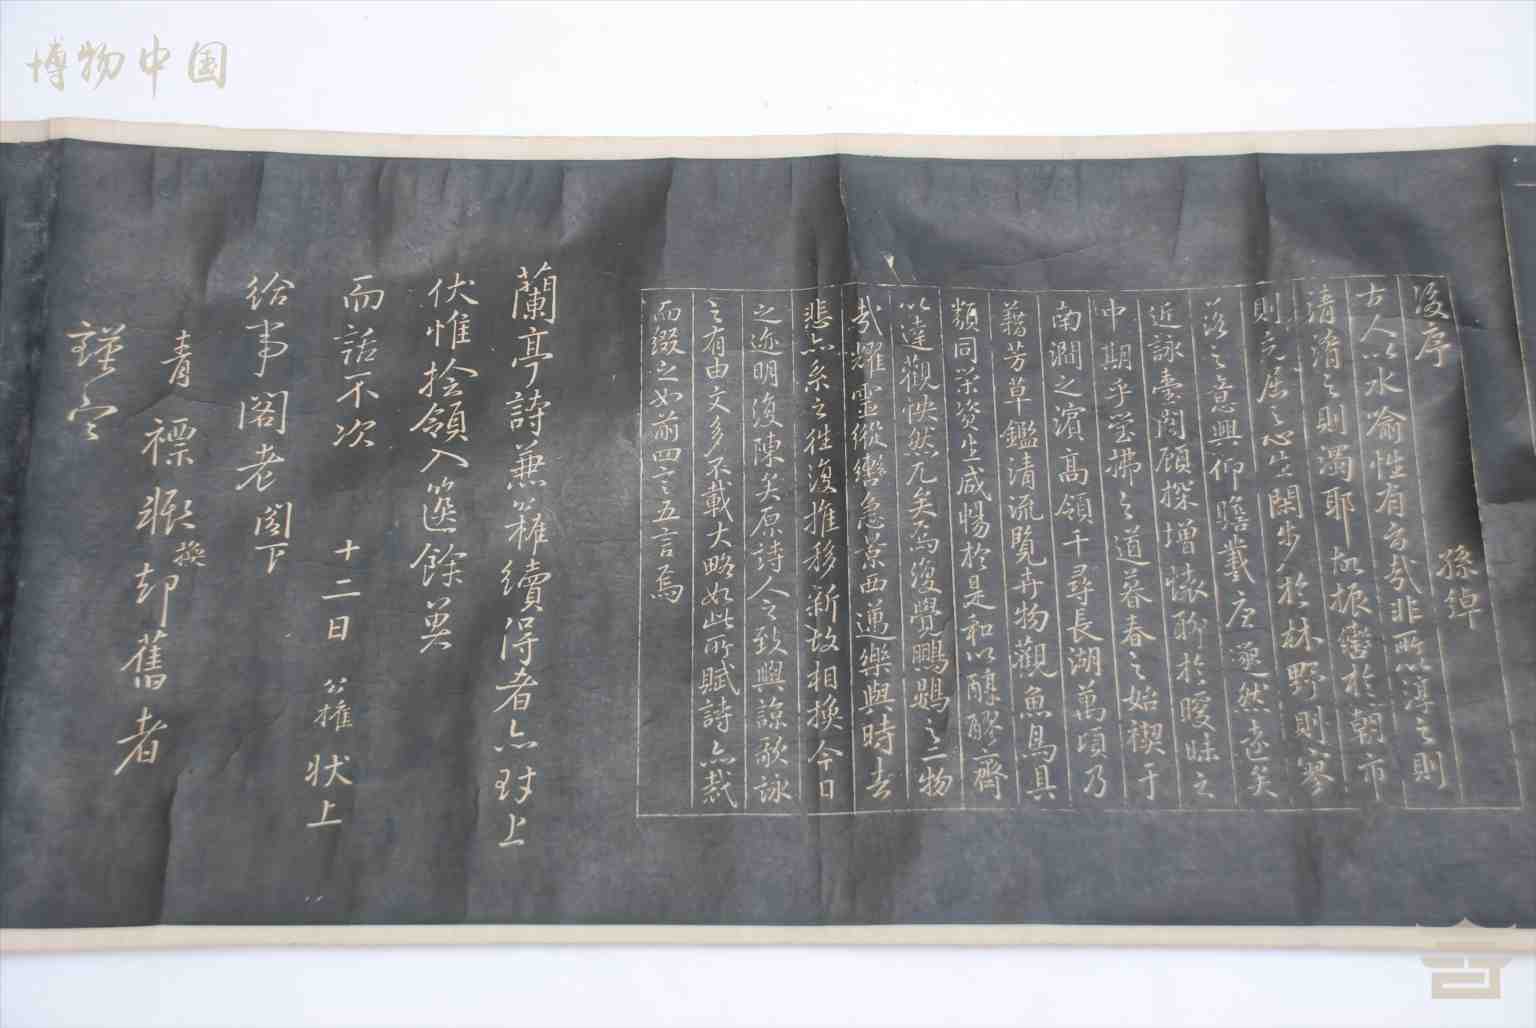 博物中国
後序 孫綽
古人以水喻性有旨哉非所以渟之則
清淆之則濁耶故振轡於朝市
則充屈之心生閑步於林野則寥
落之意興仰瞻羲唐邈然遠矣
近詠臺閣顧探增懷聊於曖昧之
中期乎瑩拂之道暮春之始禊于
南澗之濱高領千尋長湖萬頃乃
藉芳草鑑清流覽卉物觀魚鳥具
類同榮資生咸暢於是和以醇醪齊
以達觀怏然兀矣焉復覺鵬鷃之二物
哉耀靈縱轡急景西邁樂與時去
悲亦系之往復推移新故相換今日
之迹明復陳矣原詩人之致興諒歌詠
之有由文多不載大略如此所賦詩亦裁
而綴之如前四言五言焉
蘭亭詩兼

續得者亦
上
伏惟捨領入篋餘冀
而話不次 十二日 公權狀上
給事閣老閤下
青褾
換却舊者
謹空